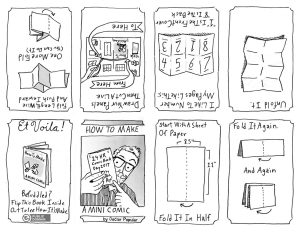 Fold Lengthwise
And Push Inward
One More Fold
(You Can Do It!)
Draw Your Panels
Then Cut A Line
From Here
To Here
I Like To Number
My Pages Like This:
1 Is The Front Cover
8 Is The Back
Unfold It
Et Voila!
Befuddled?
Flip This Book Inside
Out To See How It's Made
HOW TO MAKE
A MINI COMIC
by Doctor Popular
Start With A Sheet
Of Paper
8.5"
11"
Fold It In Half
Fold It Again
And Again